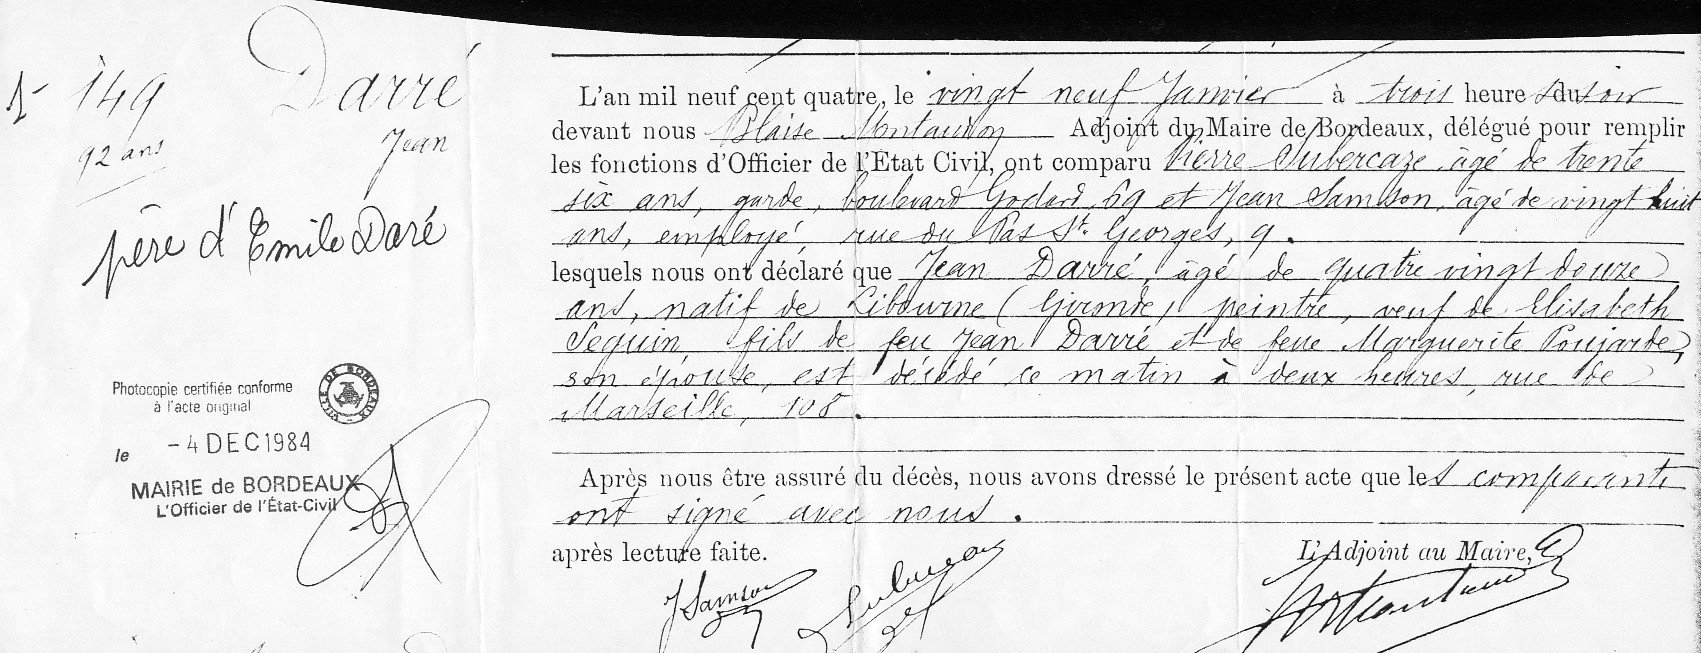 149
Darré
Jean
92 ans
père d'Emile Daré
Photocopie certifiée conforme
à l'acte original
VILLE DE BORDEAUX
le -4 DEC 1984
MAIRIE de BORDEAUX
L'Officier de l'État-Civil
L'an mil neuf cent quatre, le vingt neuf Janvier à trois heures du soir
devant nous Blaise Montaudon Adjoint du Maire de Bordeaux, délégué pour remplir
les fonctions d'Officier de l'Etat Civil, ont comparu Pierre Subercaze, âgé de trente
six ans, garde, boulevard Godard, 69 et Jean Samson, âgé de vingt huit
ans, employé, rue du Pas St Georges, 9.
lesquels nous ont déclaré que Jean Darré, âgé de quatre vingt douze
ans, natif de Libourne (Gironde) peintre, veuf de Elisabeth
Seguin, fils de feu Jean Darré et de feue Marguerite Poujarde,
son épouse, est décédé ce matin à deux heures, rue de
Marseille, 108.
Après nous être assuré du décès, nous avons dressé le présent acte que les comparants
ont signé avec nous.
après lecture faite.
L'Adjoint au Maire,
J Samson